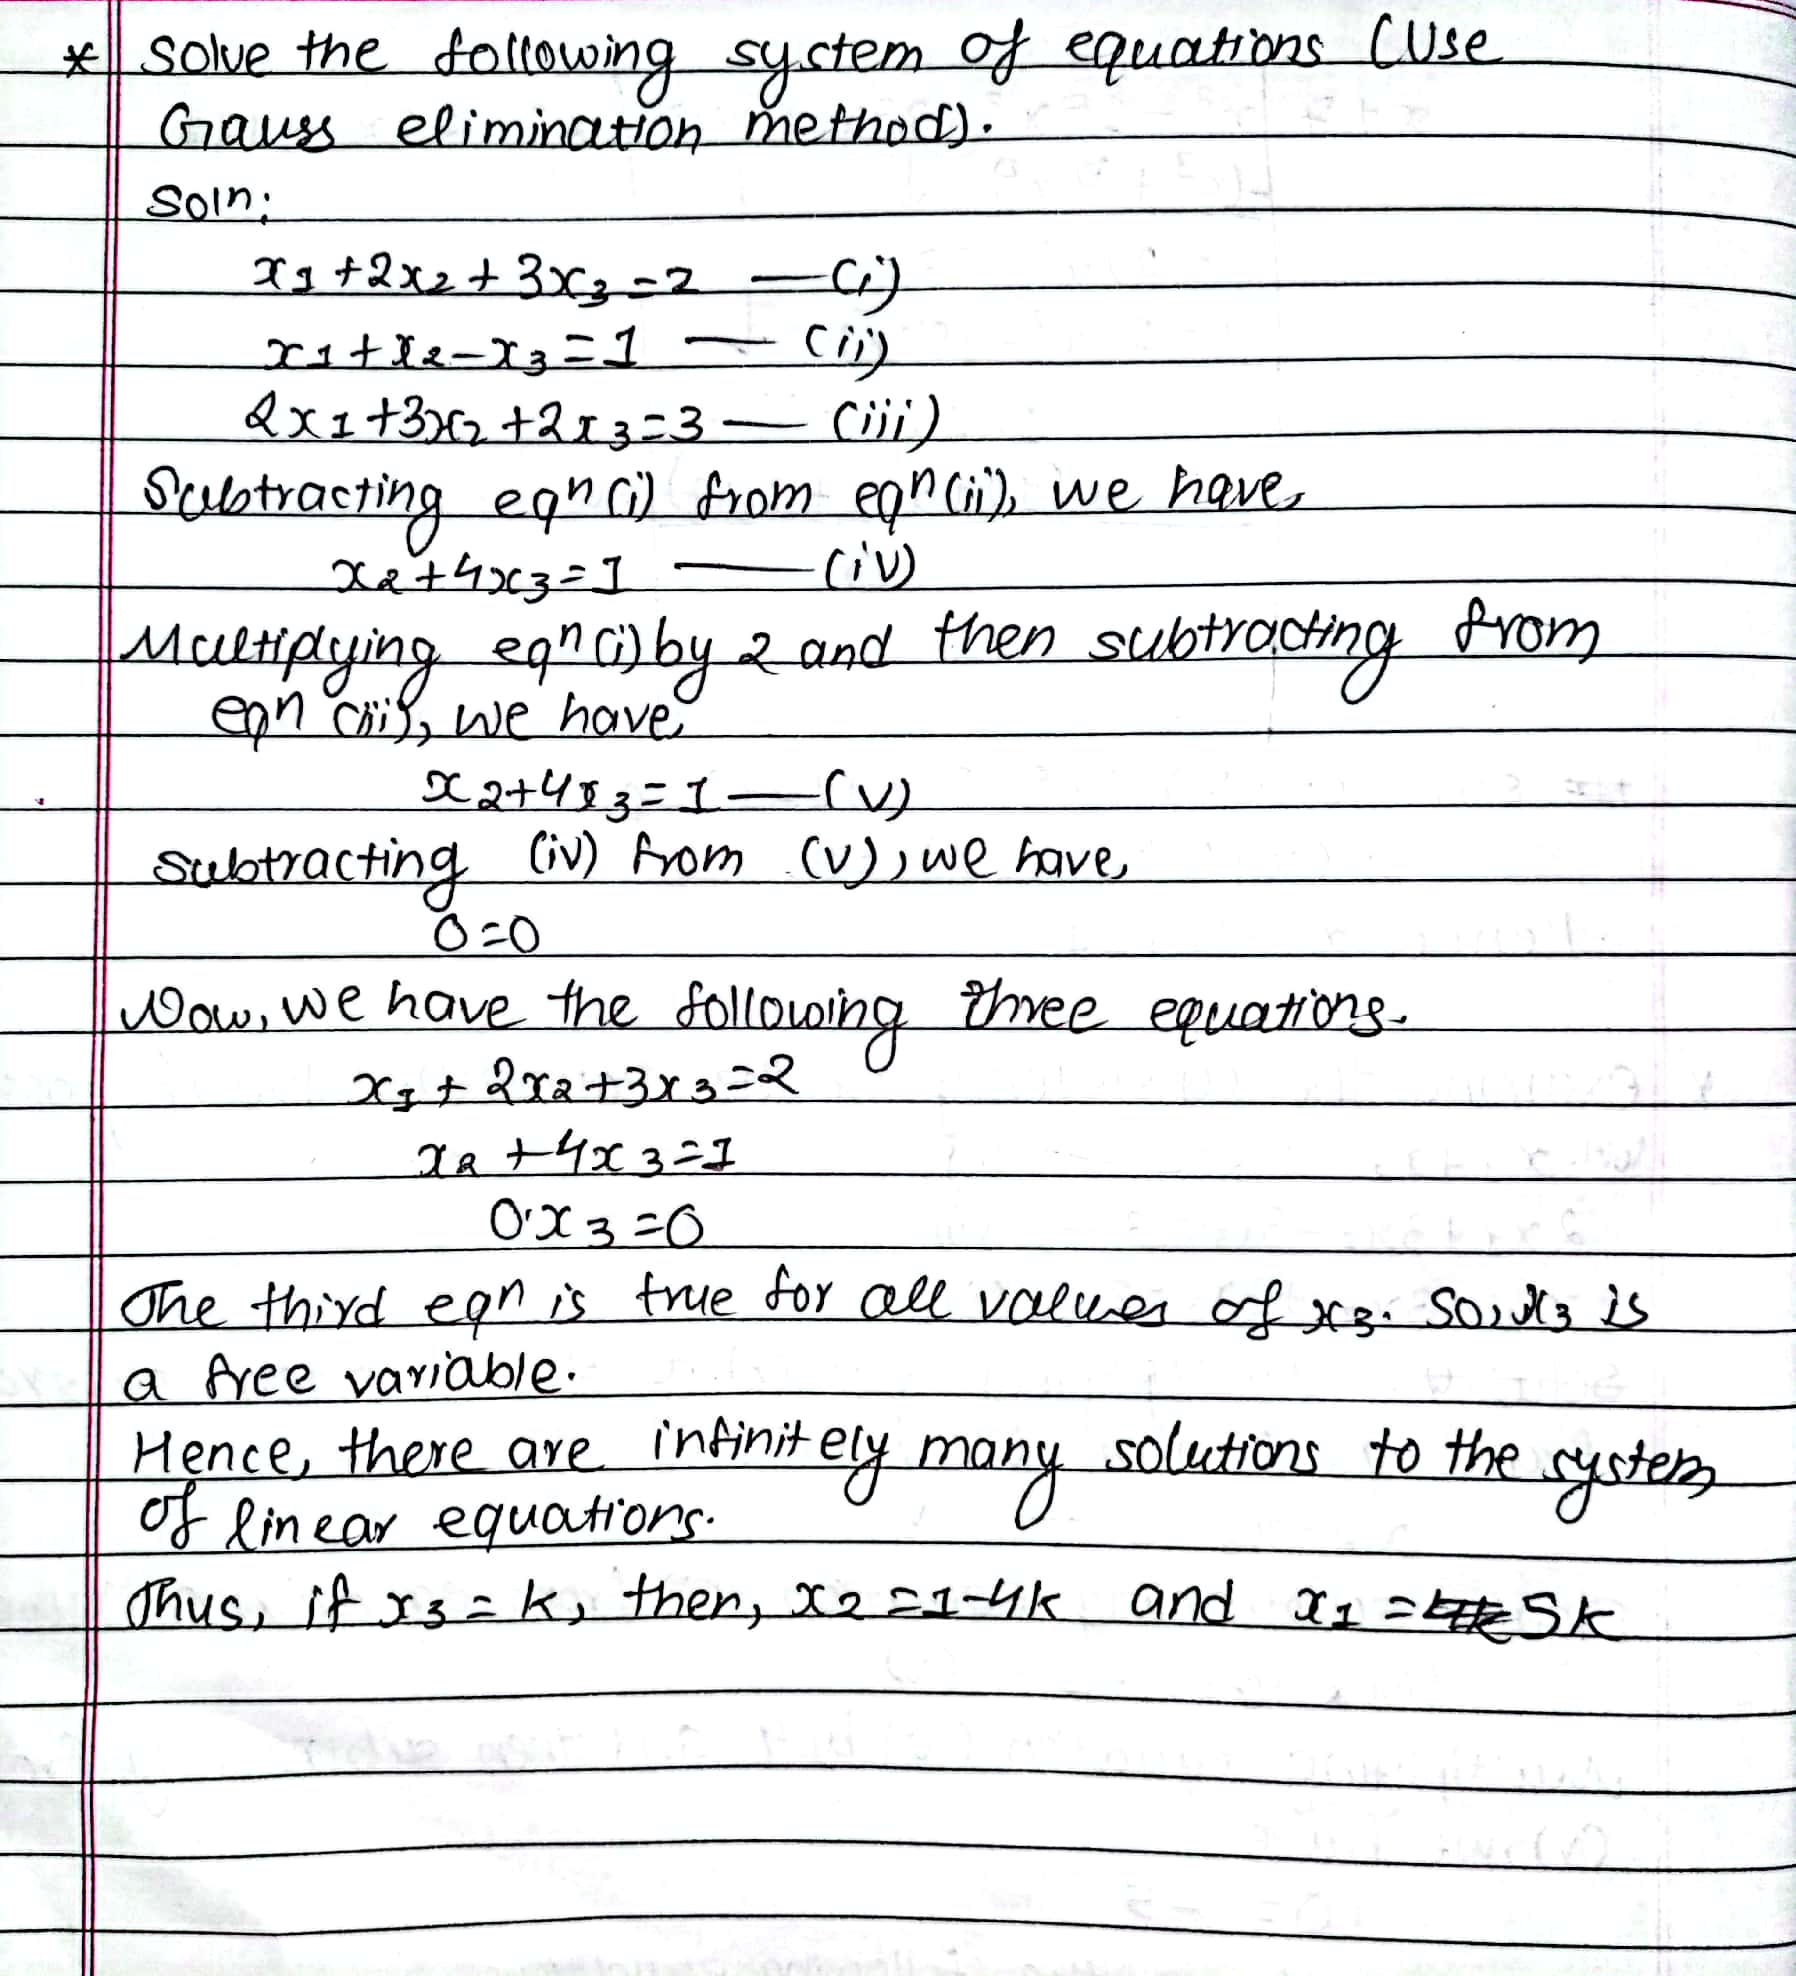 * Solve the following system of equations (Use
Gauss elimination method).
Soln:
x1 + 2x2 + 3x3 = 2 — (i)
x1 + x2 – x3 = 1 — (ii)
2x1 + 3x2 + 2x3 = 3 — (iii)
Subtracting eqn (i) from eqn (ii), we have,
x2 + 4x3 = 1 — (iv)
Multiplying eqn (i) by 2 and then subtracting from
eqn (iii), we have,
x2 + 4x3 = 1 — (v)
Subtracting (iv) from (v), we have,
0 = 0
Now, we have the following three equations.
x1 + 2x2 + 3x3 = 2
x2 + 4x3 = 1
0·x3 = 0
The third eqn is true for all values of x3. So, x3 is
a free variable.
Hence, there are infinitely many solutions to the system
of linear equations.
Thus, if x3 = k, then, x2 = 1-4k and x1 = 5k